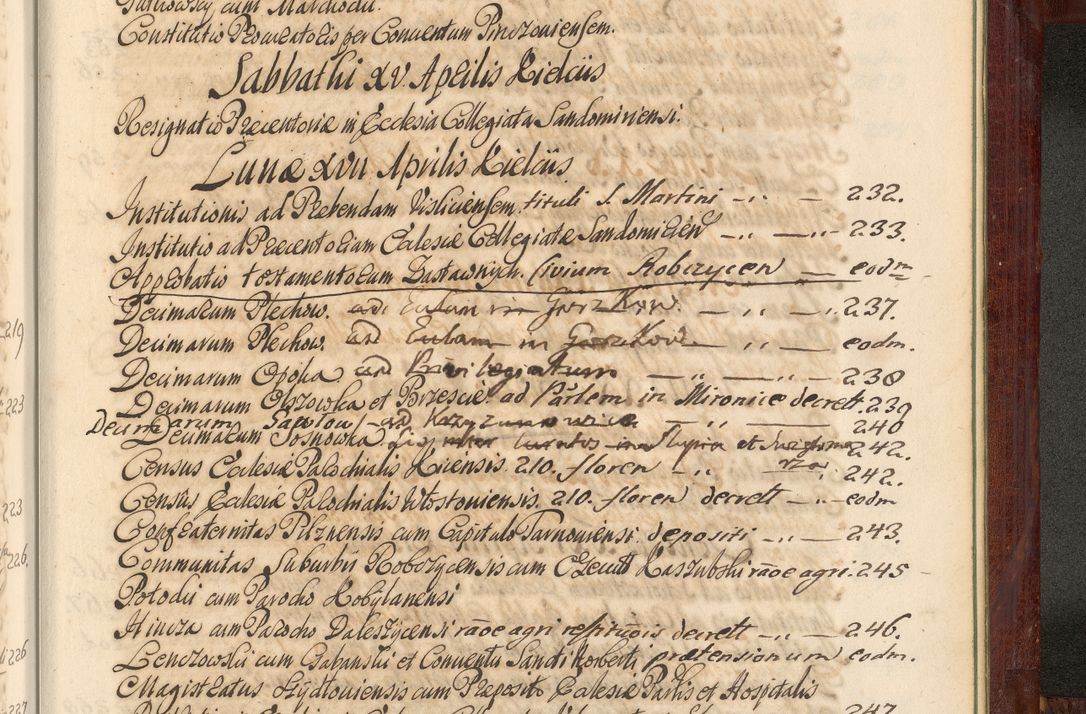 cum Marchocki.
Constitutio Procuratoris per Conventum Pinczoviensem.
Sabbathi XV. Aprilis Kielciis
Resignatio Præcentoriæ in Ecclesia Collegiata Sandomiriensi.
Lunæ XVII Aprilis Kielciis
Institutionis ad Præbendam Visliciensem tituli S. Martini -„- — 232.
Institutio ad Præcentoriam Ecclesiæ Collegiatæ Sandomirien -„- —„- 233.
Approbatio testamentorum Zastawnych. Civium Robczycen — eodm
Decimarum Plechow. ad Eulam in Gorzkow. — „ —„- 237.
Decimarum Plechow. ad Eulam in Gorzkow — „ — eodm.
Decimarum Opoka ad Privilegiatum — „ — „ — 238
Decimarum Obzowka et Brzescie ad Parlem in Mironice decrett. 239
Decimarum ad — „ — 240
Decimarum Sosnowka et 242.
Census Ecclesiæ Parochialis Kiiensis. 210. floren - „ 242.
Census Ecclesiæ Parochialis Wlostoviensis. 210. floren decrett —„- eodm
Confraternitas Pilznensis cum Capitulo Tarnoviensi depositi -„- 243.
Communitas Suburbii Robczycensis cum Kaszubski rãoe agri. 245 -
Potodii cum Parocho Kobylanensi
Hincza cum Parocho Daleszycensi rãoe agri decrett -„- 246.
Lenczowskii cum Gabanski et Conventu Sancti Norberti prætensionum eodm.
Magistratus Szydloviensis cum Præposito Ecclesiæ Partis et Hospitalis
247.
219
223
223
226.
226
227